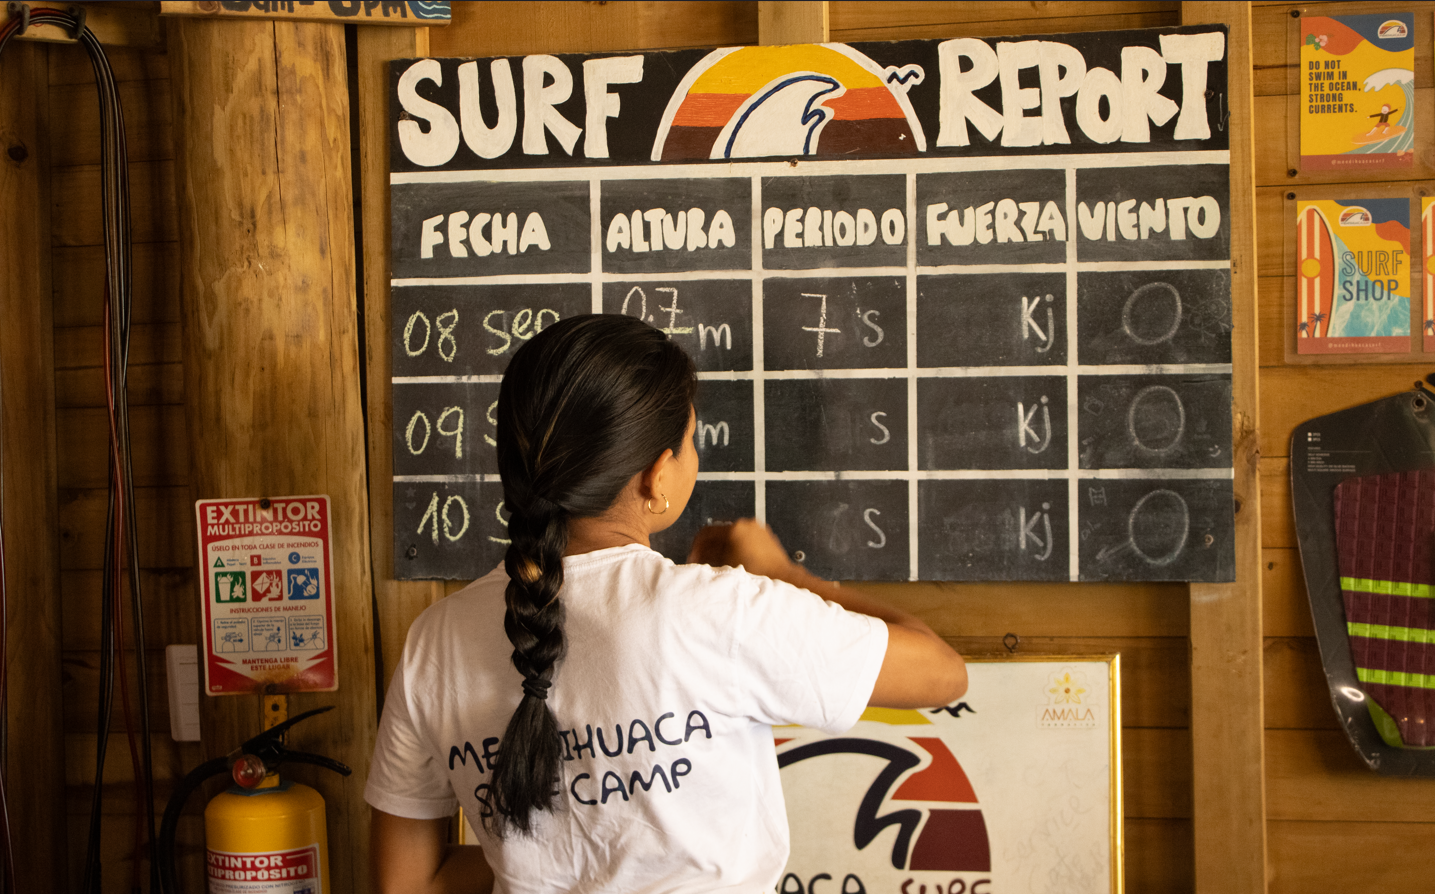 SURF REPORT
FECHA ALTURA PERIODO FUERZA VIENTO
08 Sep 0.7 m 7 s Kj O
09 S m s Kj O
10 S s Kj O
DO NOT
SWIM IN
THE OCEAN,
STRONG
CURRENTS.
@mendihuacasurf
SURF
SHOP
@mendihuacasurf
EXTINTOR
MULTIPROPÓSITO
ÚSELO EN TODA CLASE DE INCENDIOS
A B C
INSTRUCCIONES DE MANEJO
MANTENGA LIBRE
ESTE LUGAR
ME IHUACA
S CAMP
AMALA
ACA SURF
EXTINTOR
TIPROPÓSITO